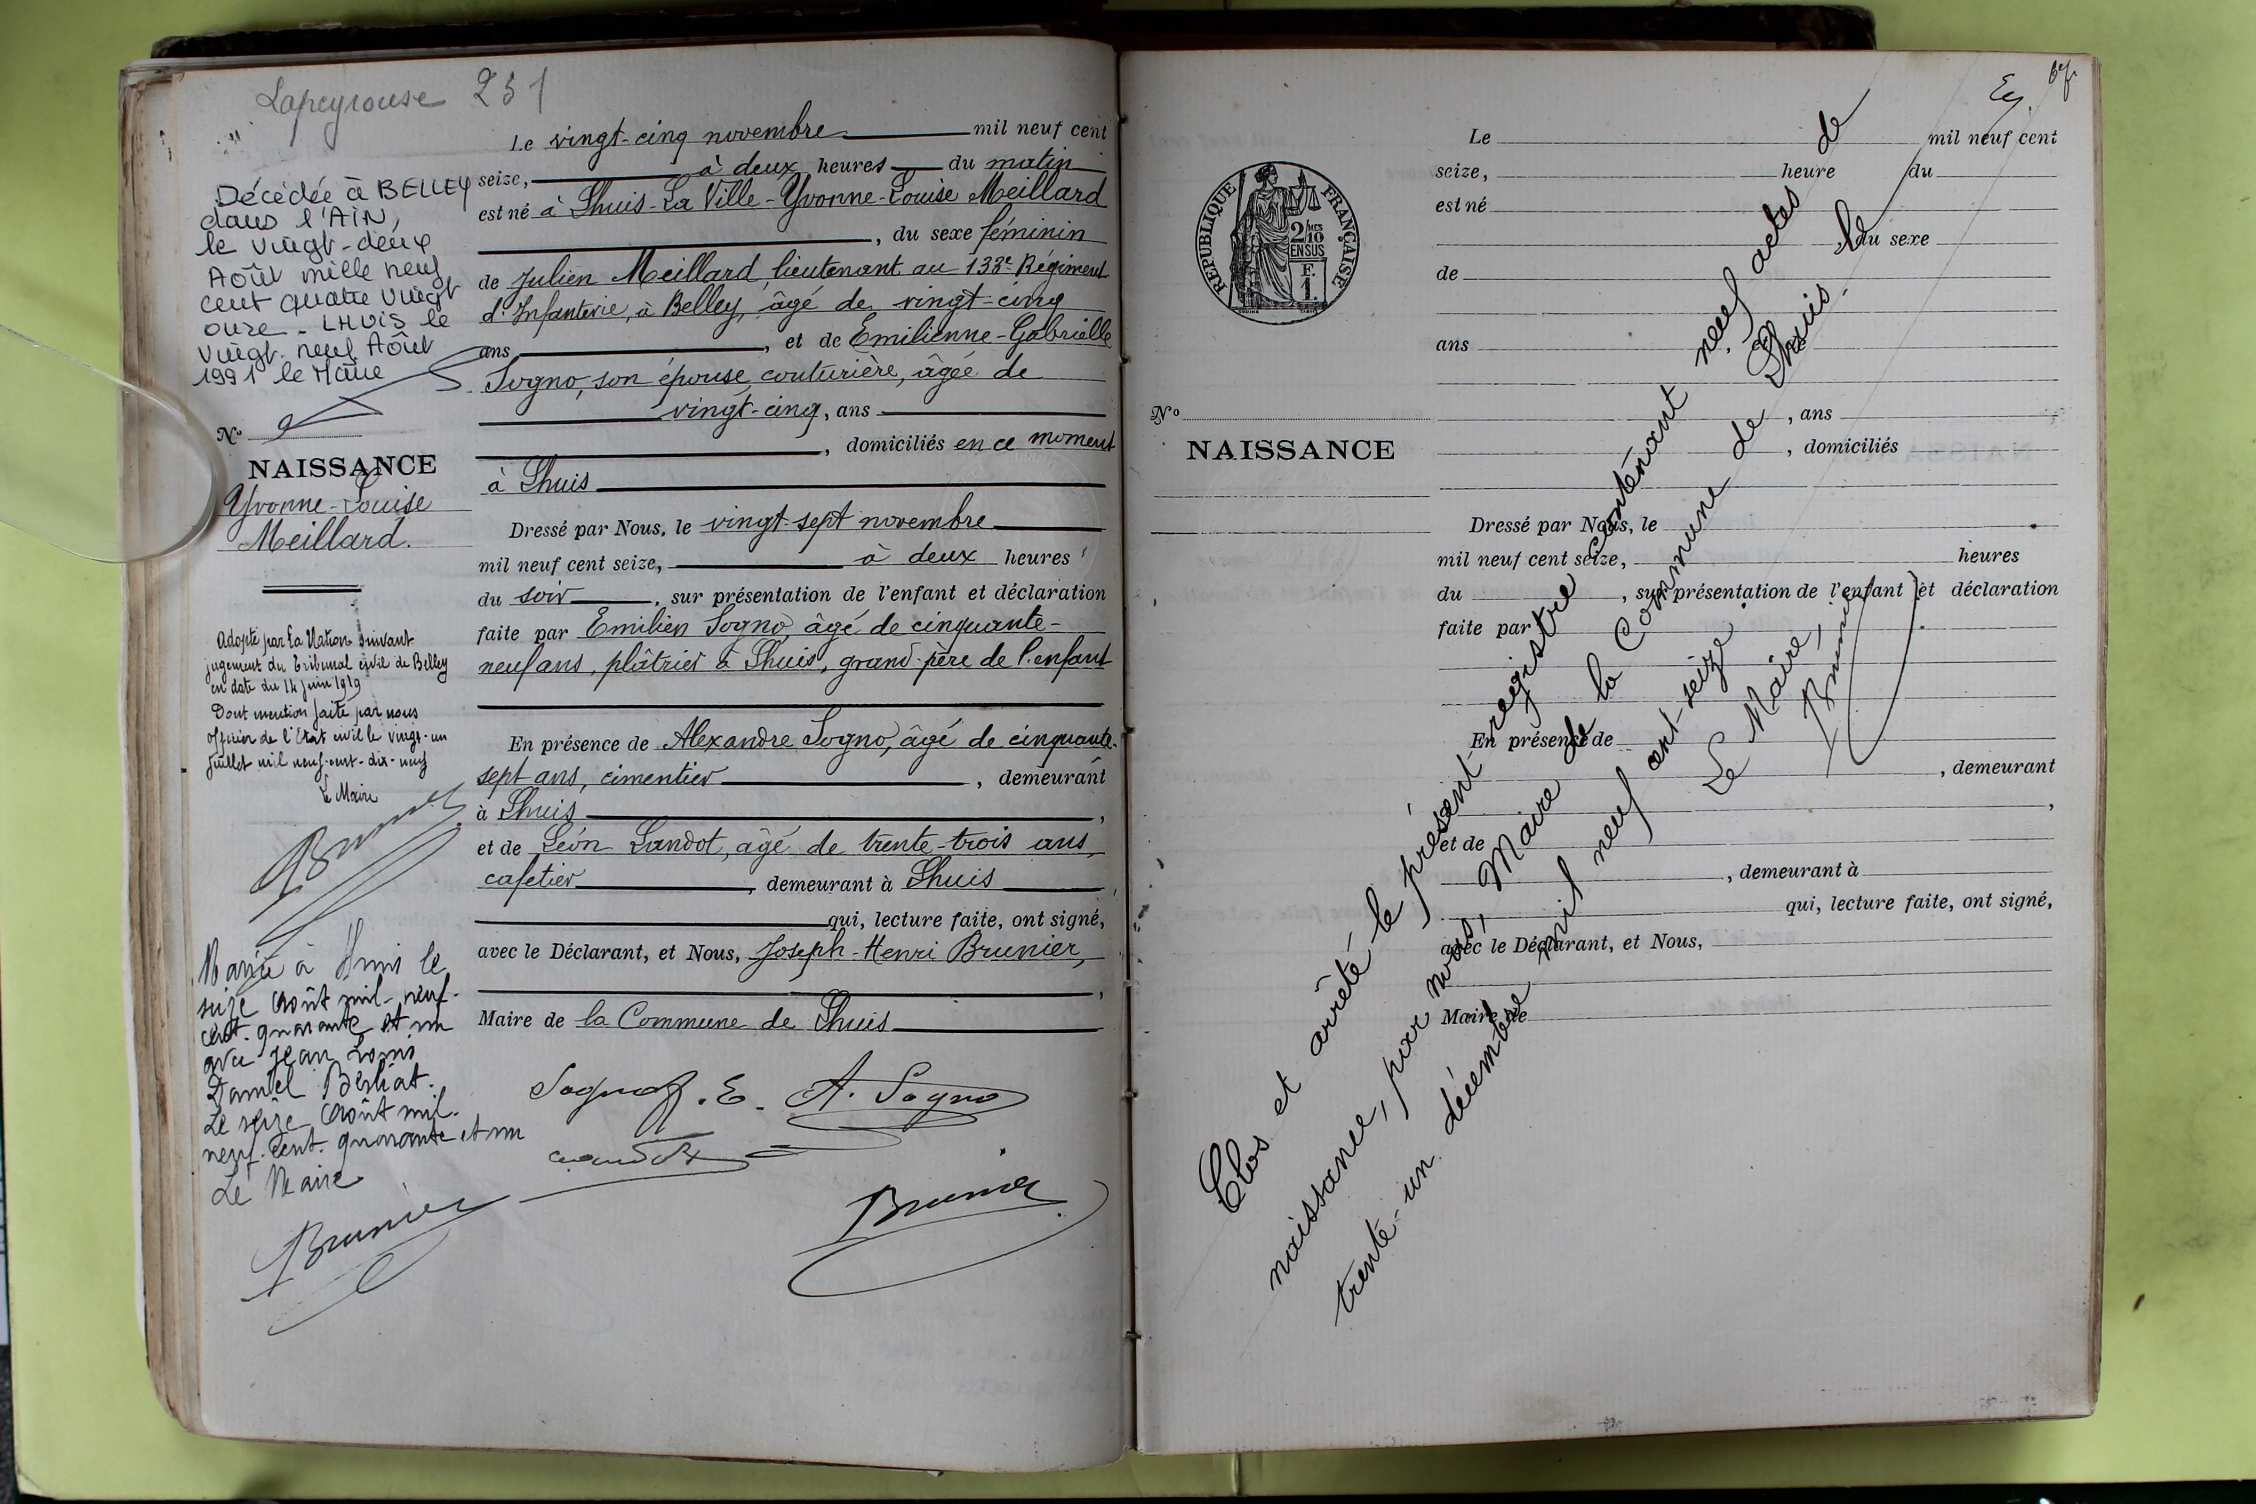 Lapeyrouse 251
Décédée à BELLEY
dans l'AIN,
le vingt-deux
Août mille neuf
cent quatre vingt
onze - LHUIS le
vingt-neuf Août
1991 le Maire
N°
NAISSANCE
Yvonne-Louise
Meillard.
Adopté par la Nation suivant
jugement du Tribunal civil de Belley
en date du 14 juin 1919
Dont mention faite par nous
officier de l'Etat civil le vingt-un
juillet mil neuf-cent-dix-neuf
Le Maire
Brunier
Mariée à Lhuis le
seize Août mil-neuf-
cent-quarante et un
avec Jean Louis
Daniel Berliat.
Le seize Août mil-
neuf-cent-quarante et un
Le Maire
Brunier
Le vingt-cinq novembre mil neuf cent
seize, à deux heures du matin
est né à Lhuis-La Ville-Yvonne-Louise Meillard
, du sexe féminin
de Julien Meillard, lieutenant au 133e Régiment
d'Infanterie, à Belley, âgé de vingt-cinq
ans , et de Emilienne-Gabrielle
Sogno, son épouse, couturière, âgée de
vingt-cinq, ans
, domiciliés en ce moment
à Lhuis
Dressé par Nous, le vingt-sept novembre
mil neuf cent seize, à deux heures
du soir , sur présentation de l'enfant et déclaration
faite par Emilien Sogno, âgé de cinquante-
neuf ans, plâtrier à Lhuis, grand-père de l'enfant
En présence de Alexandre Sogno, âgé de cinquante-
sept ans, cimentier , demeurant
à Lhuis ,
et de Léon Landot, âgé de trente-trois ans,
cafetier , demeurant à Lhuis
qui, lecture faite, ont signé,
avec le Déclarant, et Nous, Joseph-Henri Brunier,
,
Maire de la Commune de Lhuis
Sogno . E. A. Sogno
Landot
Brunier
RÉPUBLIQUE FRANÇAISE
2/10mes
EN SUS
F.
1.
N°
NAISSANCE
Le mil neuf cent
seize, heure du
est né
, du sexe
de
ans , et de
, ans
, domiciliés
Dressé par Nous, le
mil neuf cent seize, heures
du , sur présentation de l'enfant et déclaration
faite par
En présence de
, demeurant
,
et de
, demeurant à
qui, lecture faite, ont signé,
avec le Déclarant, et Nous,
Maire de
Clos et arrêté le présent registre contenant neuf actes de
naissance, par nous, Maire de la Commune de Lhuis, le
trente-un décembre mil neuf cent seize.
Le Maire,
Brunier